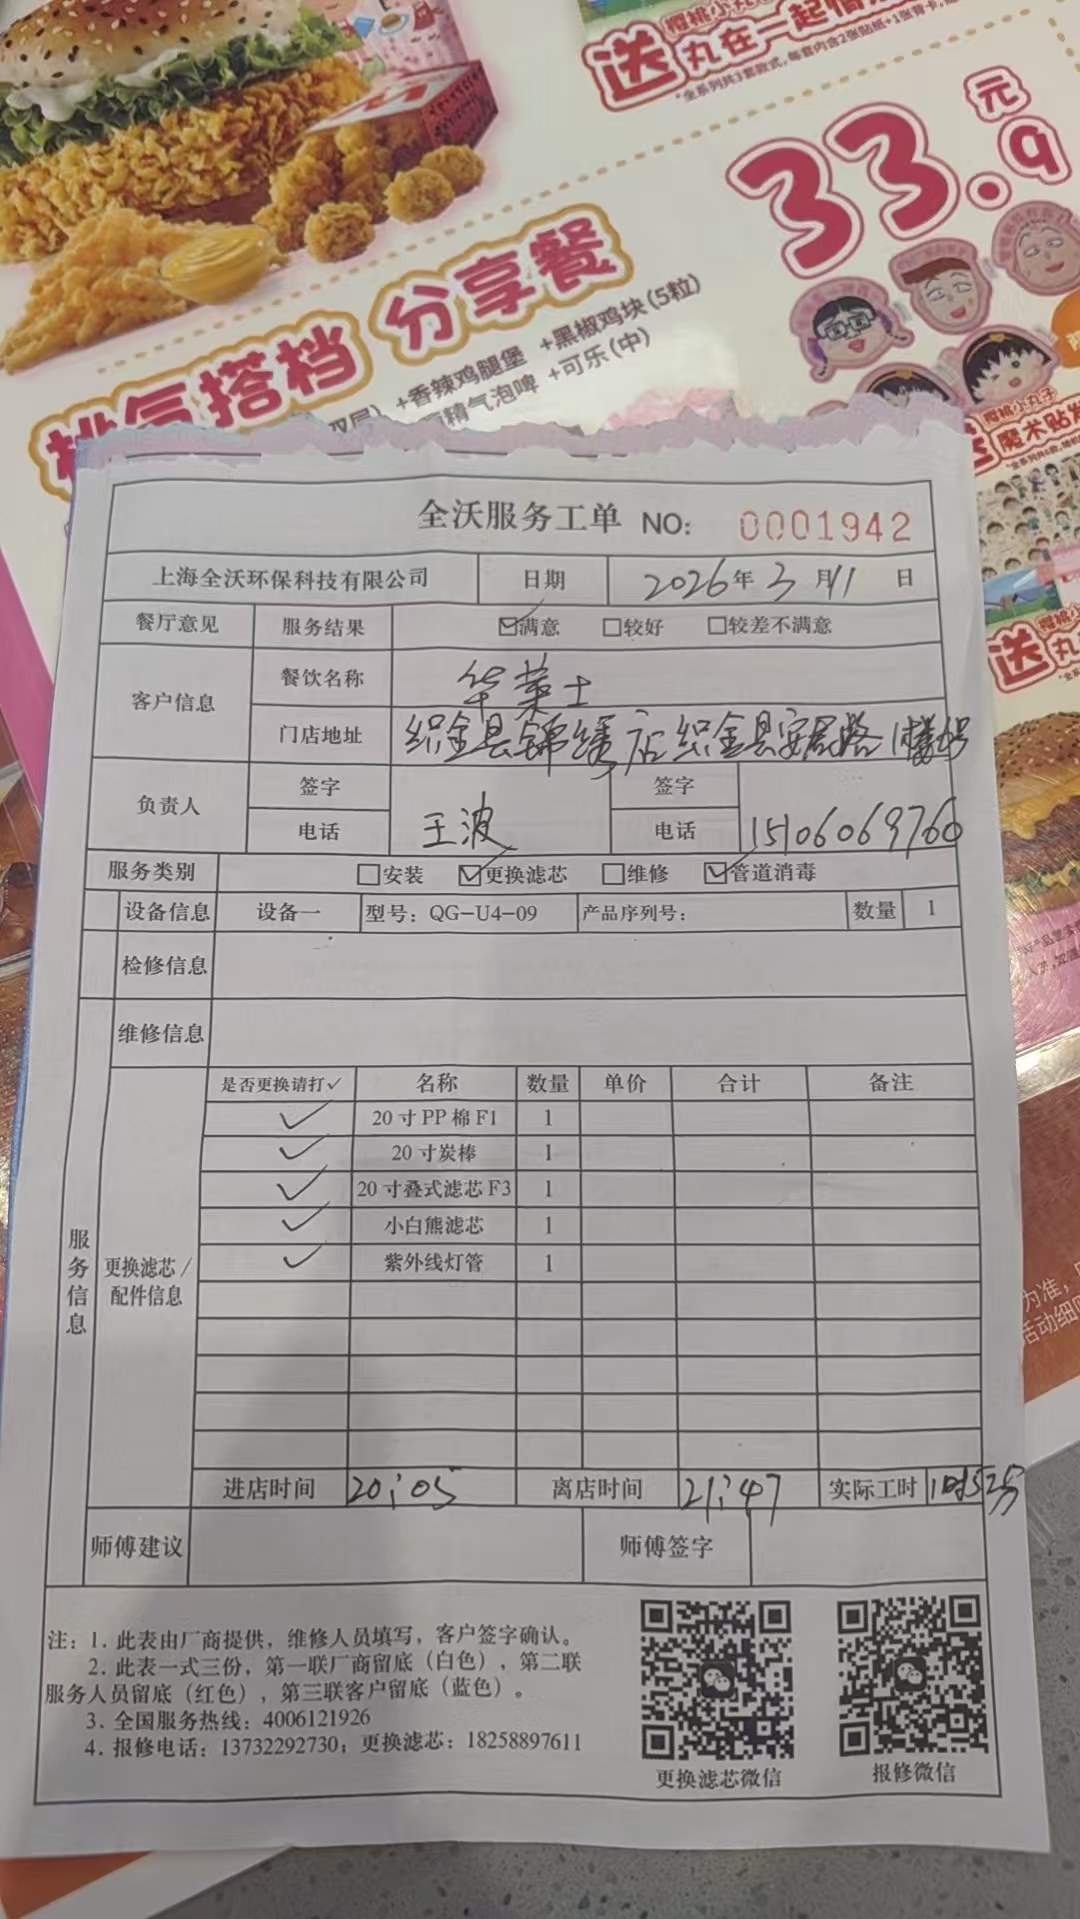 送 樱桃小丸子
丸在一起
*全系列共3套款式,每套内含2张贴纸+1张背卡
33.9元
桃气搭档 分享餐
+香辣鸡腿堡 +黑椒鸡块(5粒)
精气泡啤 +可乐(中)
樱桃小丸子
魔术贴
送 丸
全沃服务工单 NO: 0001942
上海全沃环保科技有限公司 日期 2026年3月11日
餐厅意见 服务结果 ☑满意 □较好 □较差不满意
客户信息 餐饮名称 华莱士
门店地址 织金县锦绣店织金县安居路1楼
负责人 签字 签字
电话 王波 电话 15106069760
服务类别 □安装 ☑更换滤芯 □维修 ☑管道消毒
设备信息 设备一 型号: QG-U4-09 产品序列号: 数量 1
检修信息
维修信息
服务信息
更换滤芯/配件信息
是否更换请打✓ 名称 数量 单价 合计 备注
✓ 20寸PP棉F1 1
✓ 20寸炭棒 1
✓ 20寸叠式滤芯F3 1
✓ 小白熊滤芯 1
✓ 紫外线灯管 1
进店时间 20:05 离店时间 21:47 实际工时
师傅建议 师傅签字
注: 1. 此表由厂商提供，维修人员填写，客户签字确认。
2. 此表一式三份，第一联厂商留底（白色），第二联
服务人员留底（红色），第三联客户留底（蓝色）。
3. 全国服务热线: 4006121926
4. 报修电话: 13732292730; 更换滤芯: 18258897611
更换滤芯微信 报修微信